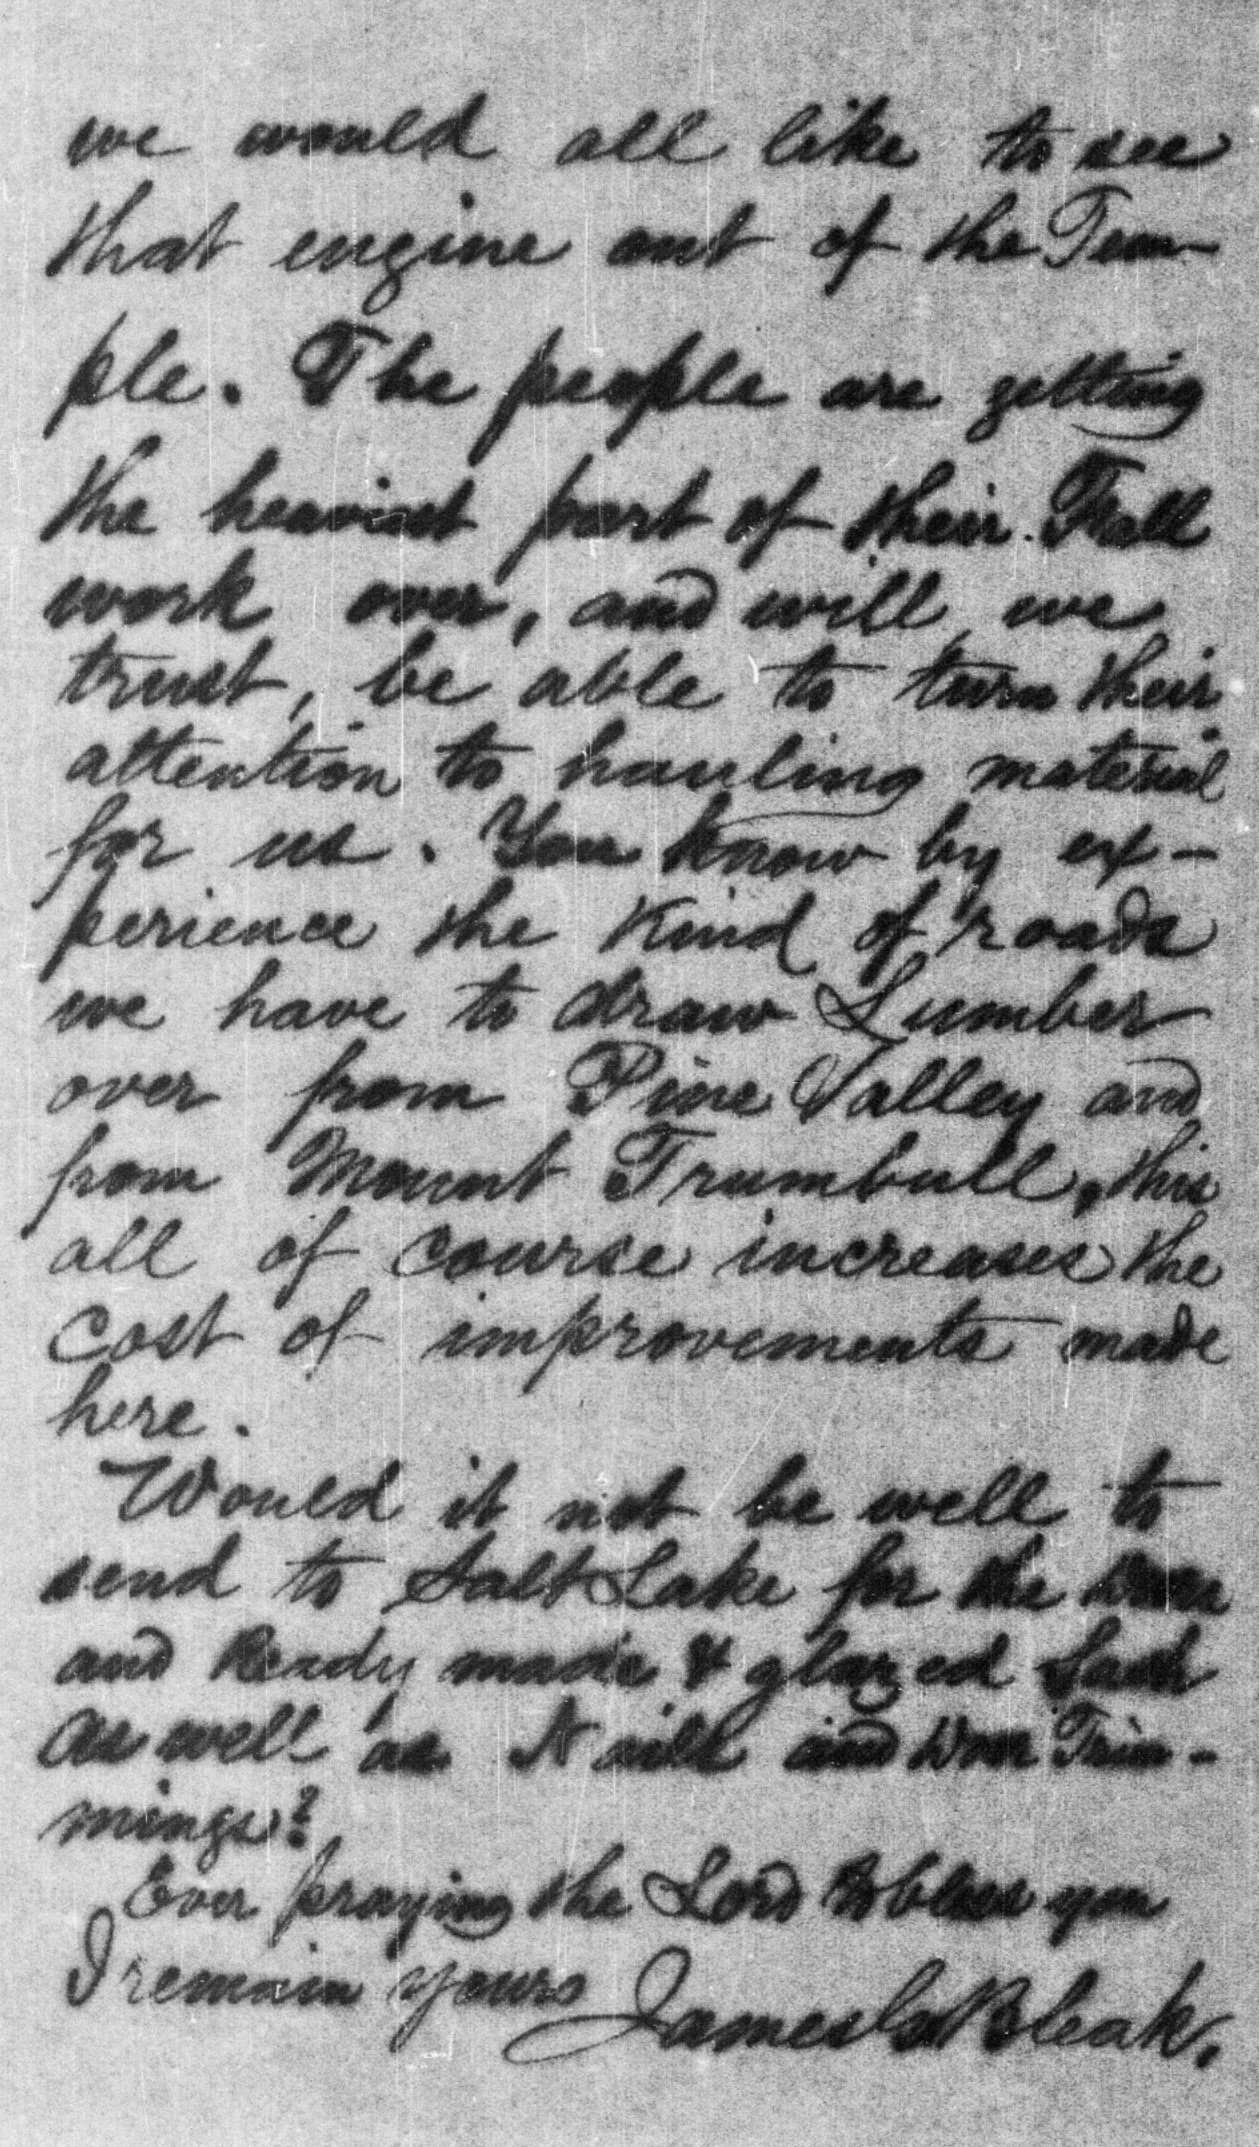 we would all like to see
that engine out of the Tem-
ple. The people are getting
the heaviest part of their Fall
work over, and will, we
trust, be able to turn their
attention to hauling material
for us. You know by ex-
perience the kind of roads
we have to draw Lumber
over from Pine Valley and
from Mount Trumbull, this
all of course increases the
cost of improvements made
here.
Would it not be well to
send to Salt Lake for the Doors
and Ready made & glazed Sash
as well as Nails and Door Trim-
mings?
Ever praying the Lord to bless you
I remain yours James G Bleak.